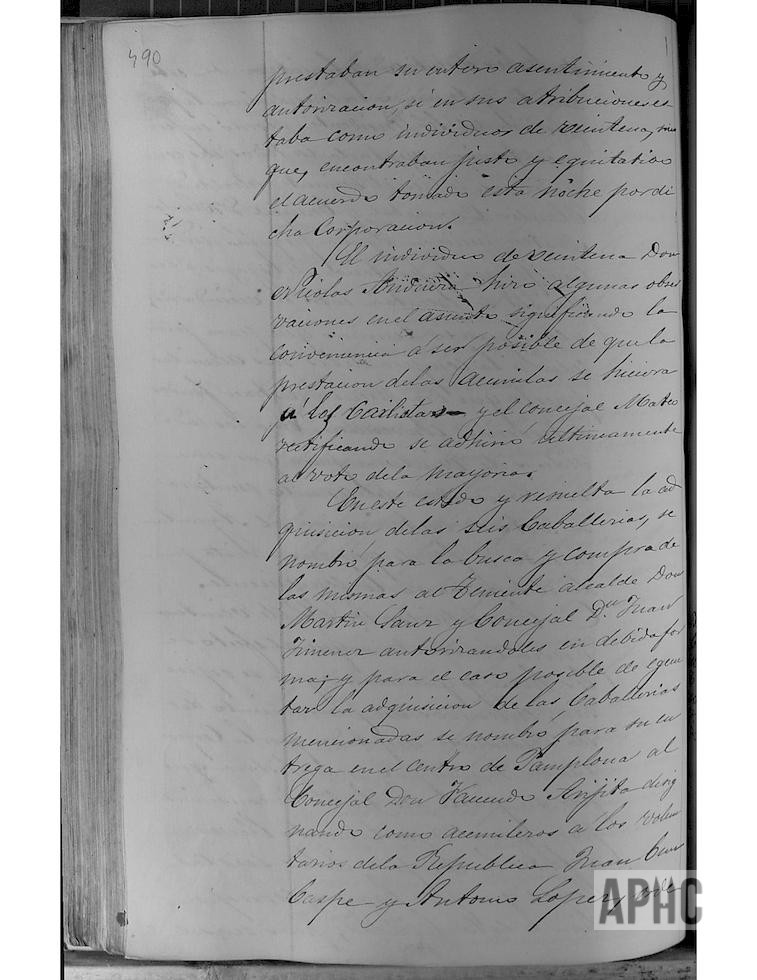 490
prestaban su entero asentimiento y
autorizacion, si en sus atribuciones es
taba como individuos de veintena, mas
que, encontraban justo y equitativo
el acuerdo tomado esta noche por di
cha Corporacion.
El individuo de veintena Don
Nicolas hizo algunas obser
vaciones en el asunto significando la
conveniencia á ser posible de que la
prestacion de las acemilas se hiciera
á los Carlistas y el concejal Mateo
rectificando se adhirió ultimamente
al voto de la mayoria.
En este estado y resuelta la ad
quisicion de las seis Caballerias, se
nombró para la busca y compra de
las mismas al Teniente alcalde Don
Martin Sanz y Concejal Dn. Juan
Jimenez autorizandoles en debida for
ma; y para el caso posible de egecu
tar la adquisicion de las Caballerias
mencionadas se nombró para su en
trega en el centro de Pamplona al
Concejal Don Facundo Arijita desig
nando como acemileros a los volun
tarios de la Republica Juan Cruz
Caspe y Antonio Lopez,
APHC